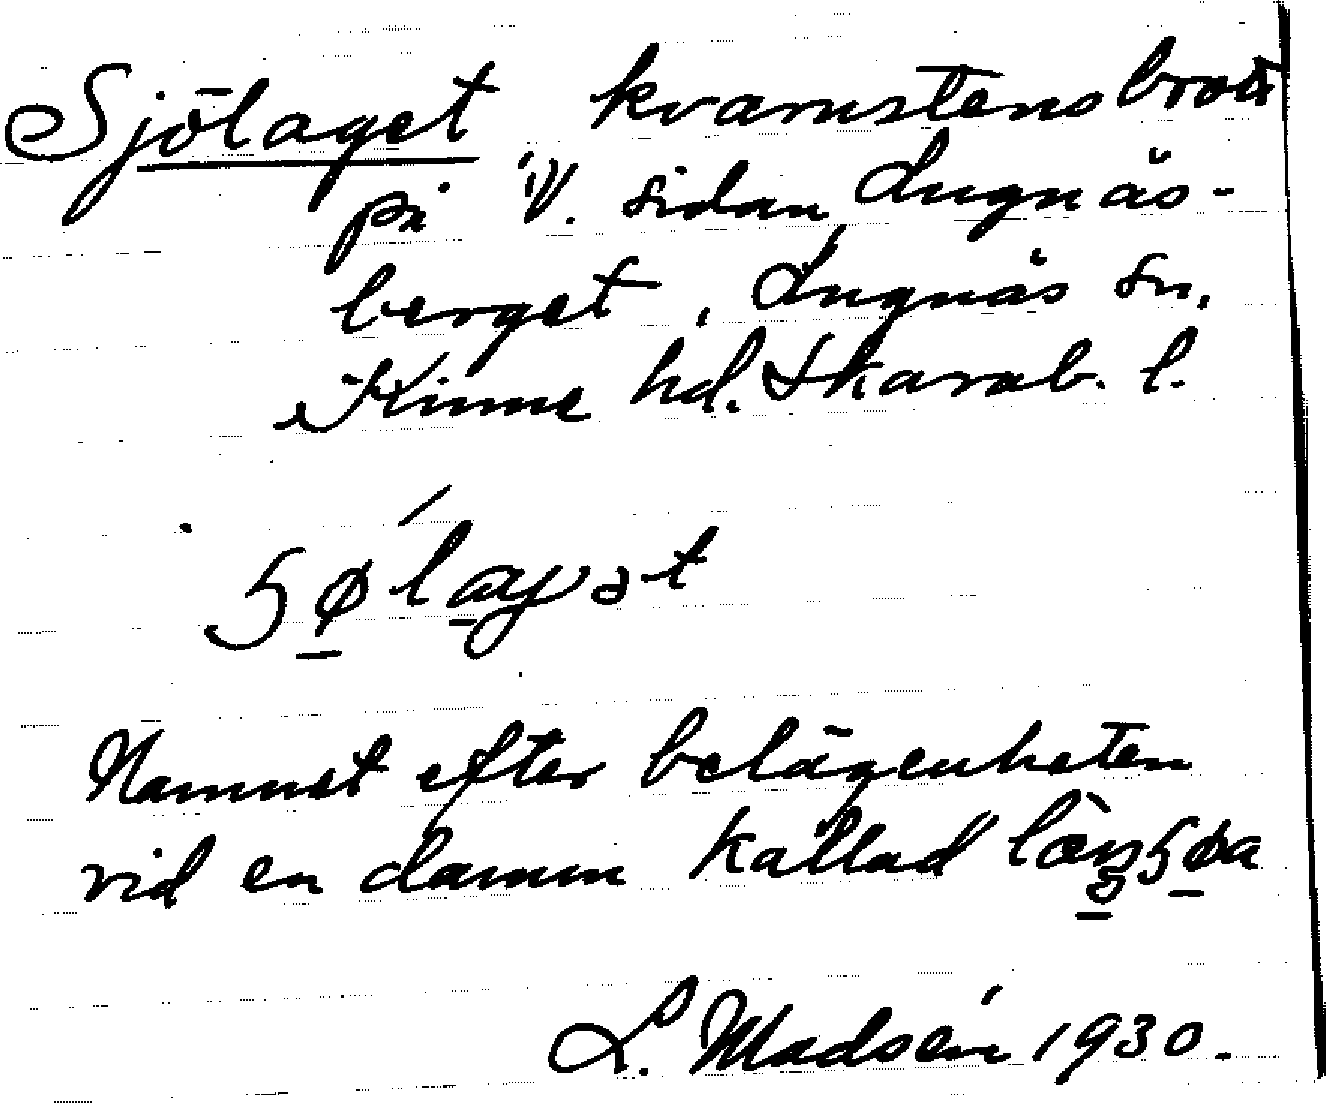 Sjölaget kvarnstensbrott
på V. sidan Lugnås-
berget, Lugnås sn,
Kinne hd. Skarab. l.
Namnet efter belägenheten
vid en damm kallad
L. Madsén 1930.